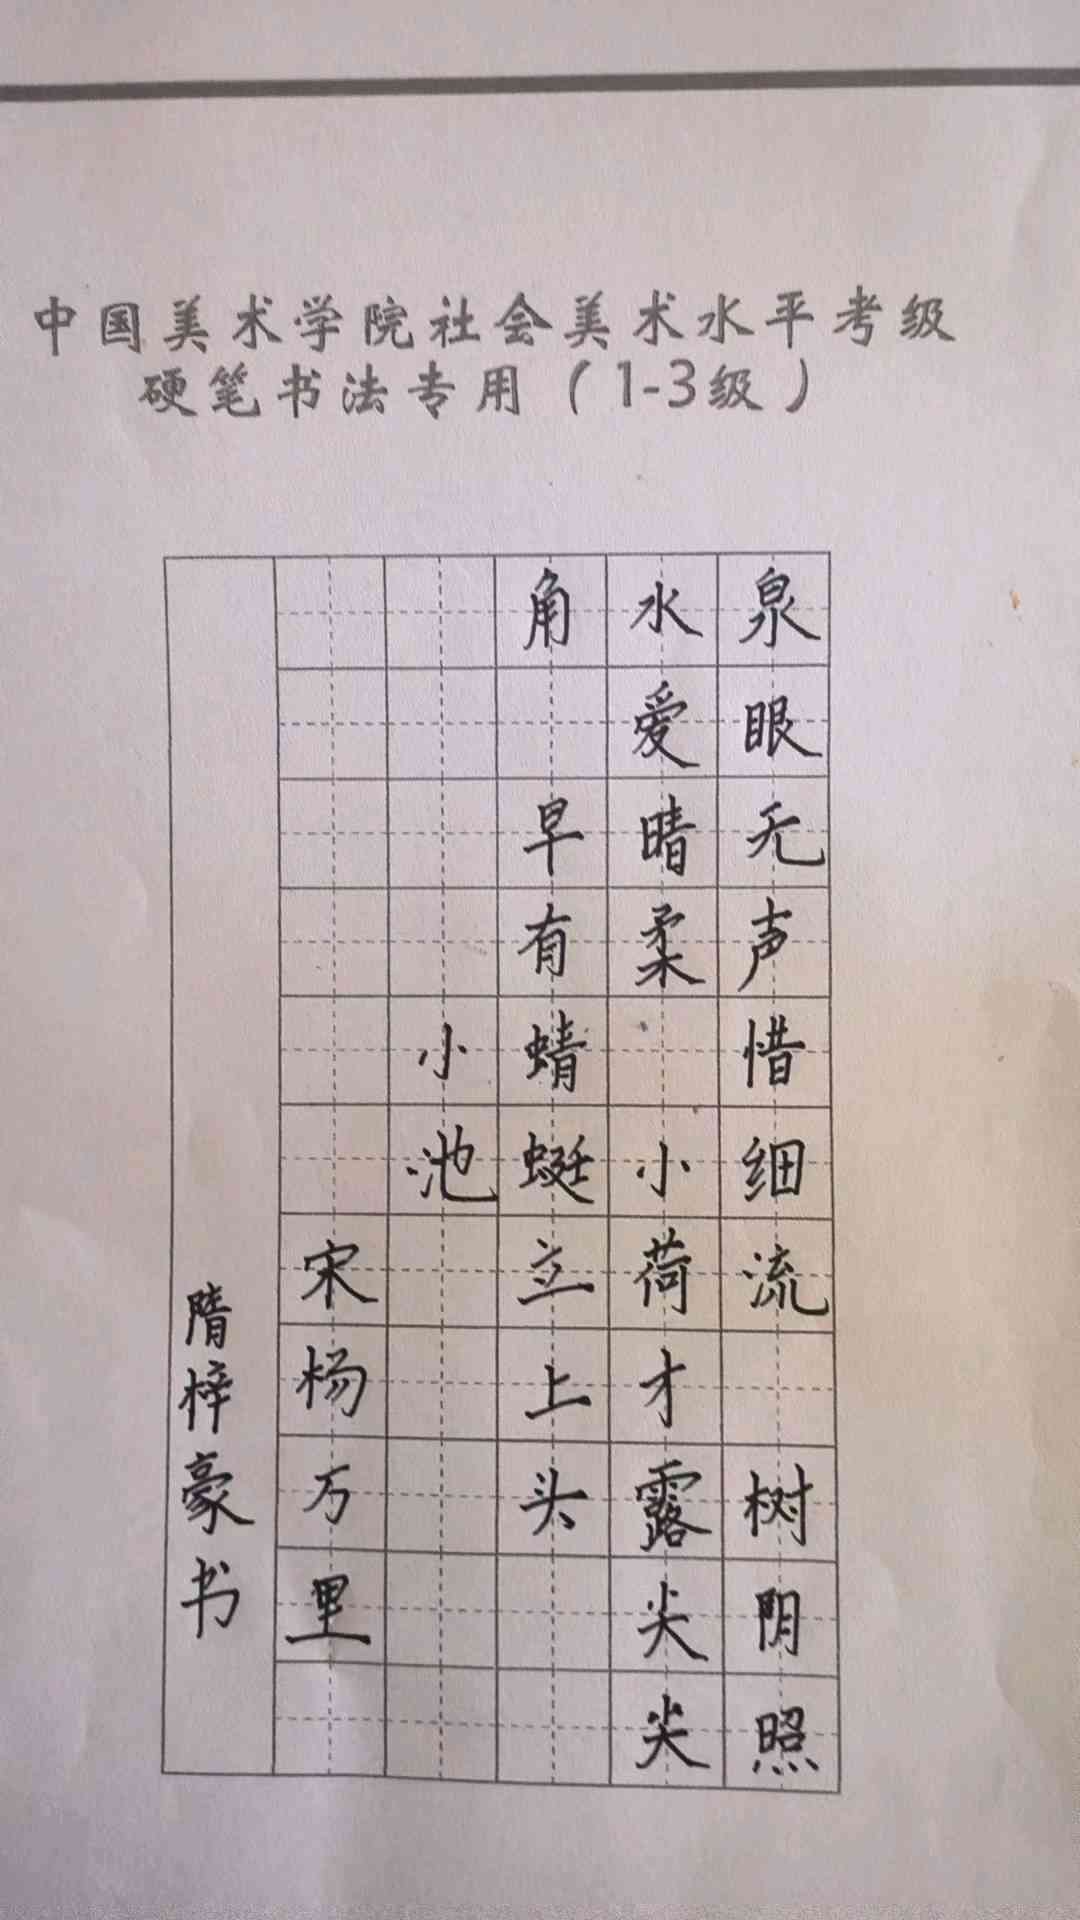 中国美术学院社会美术水平考级
硬笔书法专用（1-3级）
泉眼无声惜细流 树阴照
水爱晴柔 小荷才露尖尖
角 早有蜻蜓立上头
小池
宋杨万里
隋梓豪书